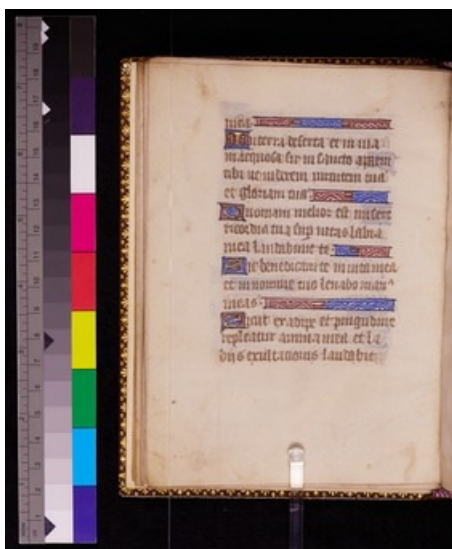 mea
In terra deserta et inuia
inaquosa sic in sancto aparui
tibi ut uiderem uirtutem tuã
et gloriam tuã
Quoniam melior est miseri
ricordia tua sup uitas labia
mea laudabunt te
Sic benedicam te in uita mea
et in nomine tuo leuabo man⁹
meas
Sicut ex adipe et pinguedine
repleatur anima mea et la
biis exultacionis laudabit